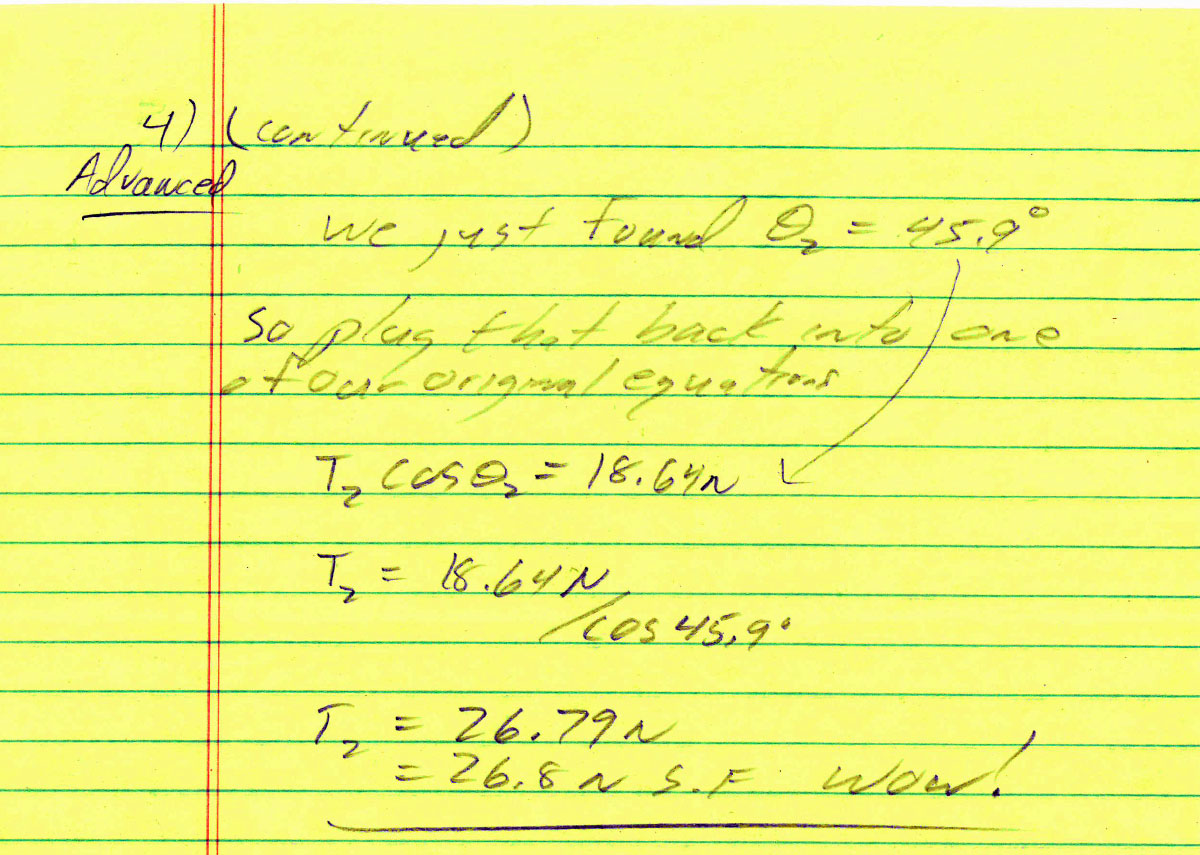 4) (continued)
Advanced
we just Found θ₂ = 45.9°
so plug that back into one
of our original equations
T₂ cosθ₂ = 18.64N
T₂ = 18.64N
/cos 45.9°
T₂ = 26.79N
= 26.8N S.F Wow!